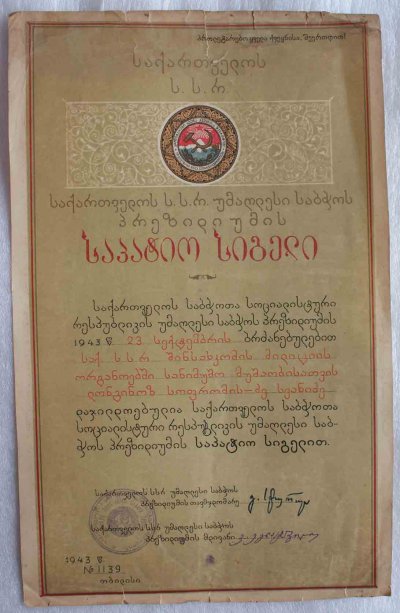 პროლეტარებო ყველა ქვეყნისა, შეერთდით!
საქართველოს
ს. ს. რ.
საქართველოს ს. ს. რ. უმაღლესი საბჭოს
პრეზიდიუმის
საპატიო სიგელი
საქართველოს საბჭოთა სოციალისტური
რესპუბლიკის უმაღლესი საბჭოს პრეზიდიუმის
1943 წ. 23 სექტემბრის ბრძანებულებით
საქ. ს ს რ შინსახკომის მილიციის
ორგანოებში სანიმუშო მუშაობისათვის
ლონგინოზ სოფრომის-ძე
დაჯილდოებულია საქართველოს საბჭოთა
სოციალისტური რესპუბლიკის უმაღლესი საბ-
ჭოს პრეზიდიუმის საპატიო სიგელით.
საქართველოს სსრ უმაღლესი საბჭოს
პრეზიდიუმის თავმჯდომარე
საქართველოს სსრ უმაღლესი საბჭოს
პრეზიდიუმის მდივანი
1943 წ.
№ 1139
თბილისი